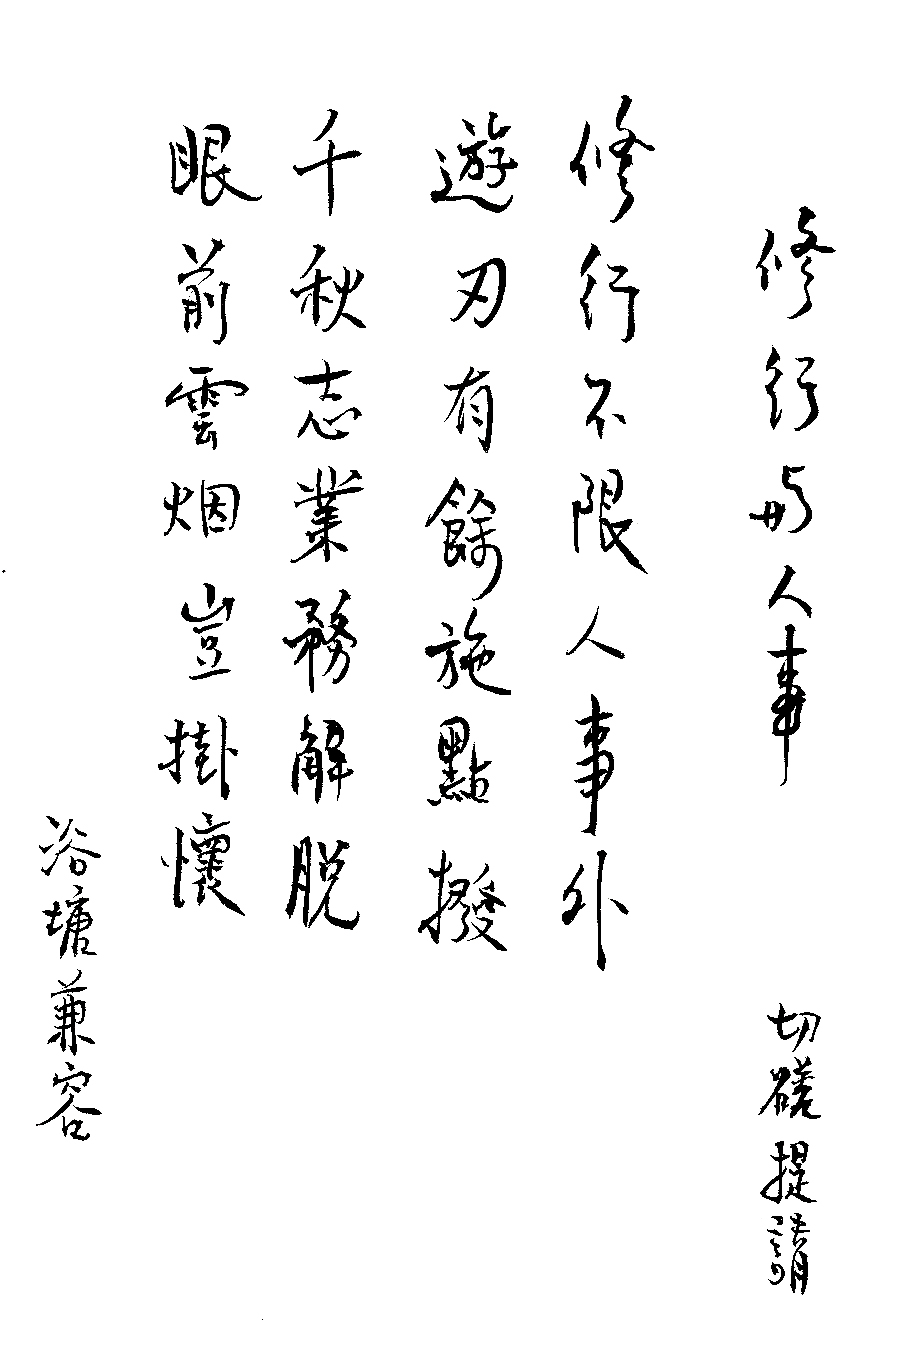 修行与人事
切磋提請
修行不限人事外
遊刃有餘施點撥
千秋志業務解脫
眼前雲烟豈掛懷
浴塘兼容